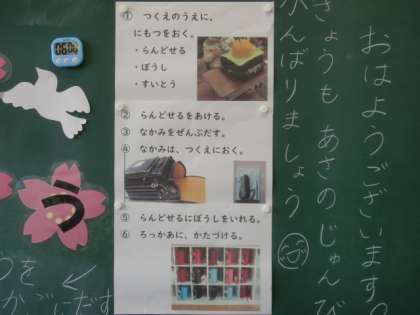 ① つくえのうえに、
にもつをおく。
・らんどせる
・ぼうし
・すいとう
② らんどせるをあける。
③ なかみをぜんぶだす。
④ なかみは、つくえにおく。
⑤ らんどせるにぼうしをいれる。
⑥ ろっかあに、かたづける。
おはようございます。
きょうも あさの じゅんび
がんばりましょう
う